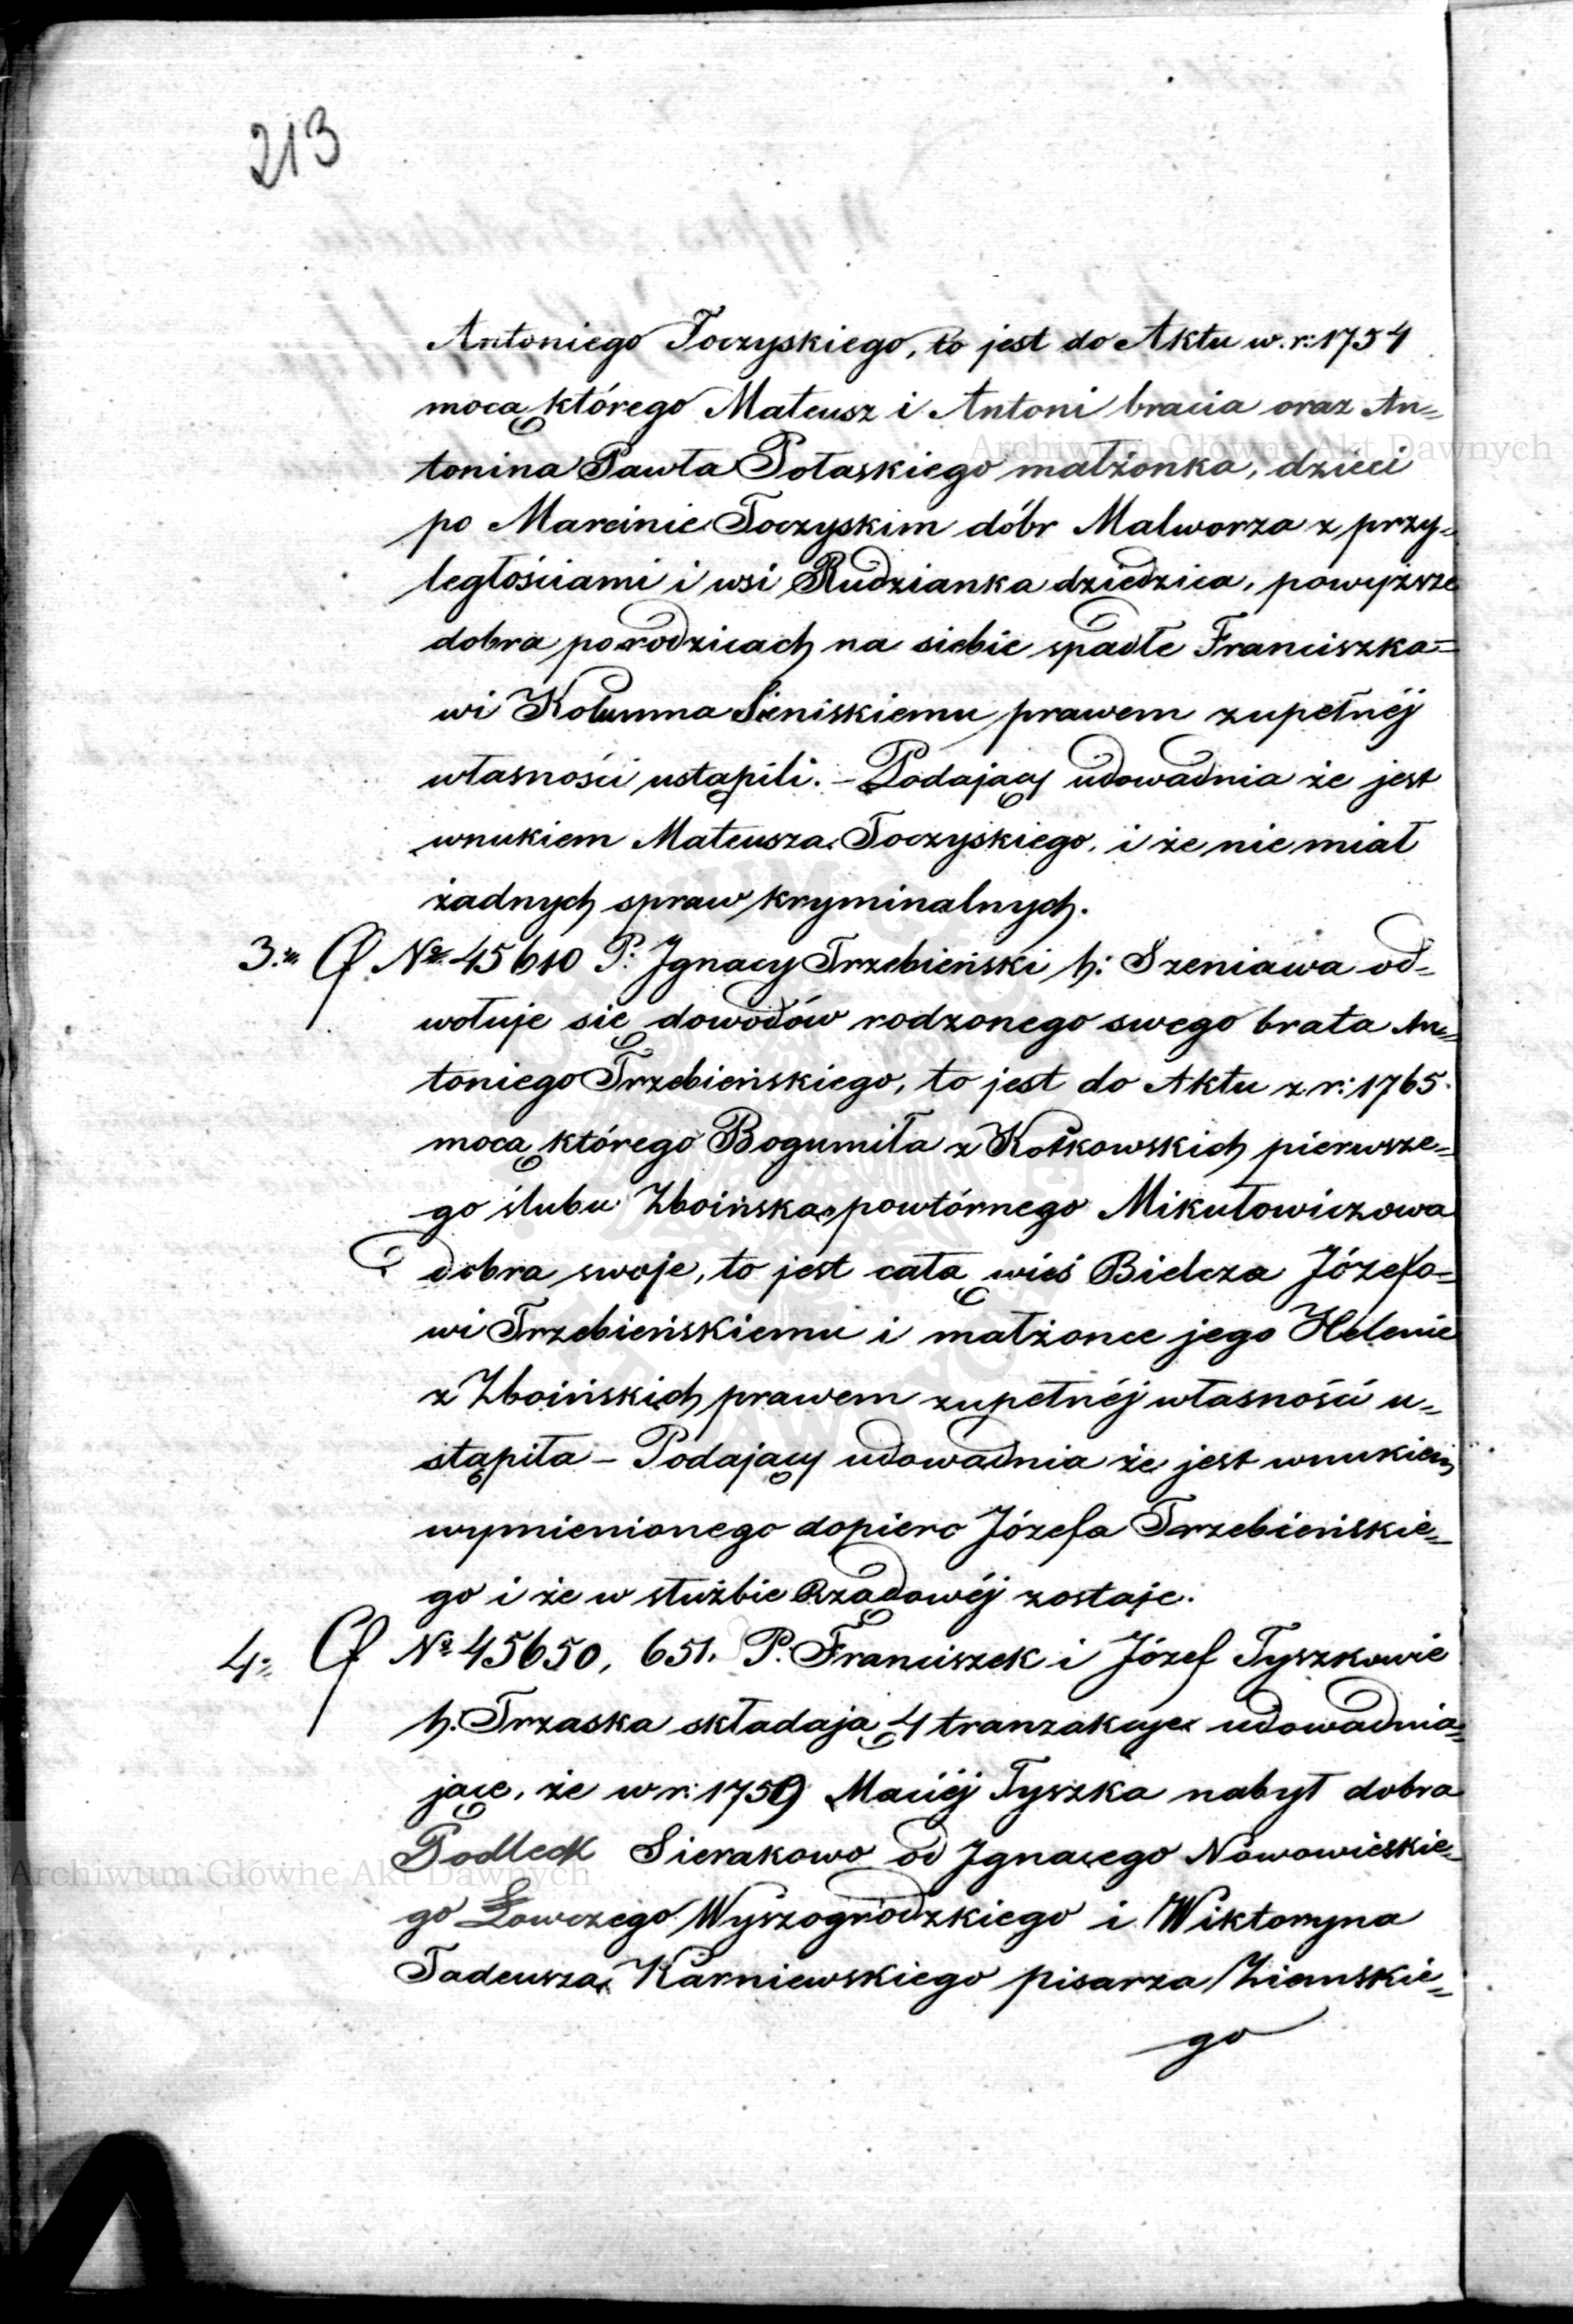 213
Antoniego Toczyskiego, to jest do Aktu w.r: 1754
mocą którego Mateusz i Antoni bracia oraz An=
tonina Pawła Połaskiego małżonka, dzieci
po Marcinie Toczyskim dóbr Malworza z przy=
ległościami i wsi Rudzianka dziedzica, powyższe
dobra po rodzicach na siebie spadłe Franciszko=
wi Kolumna Sieniskiemu prawem zupełnéj
własności ustąpili. – Podający udowadnia że jest
wnukiem Mateusza Toczyskiego, i że nie miał
żadnych spraw kryminalnych.
3. Nº 45610 P: Ignacy Trzebieński h: Szeniawa od=
wołuje się dowodów rodzonego swego brata An=
toniego Trzebieńskiego, to jest do Aktu z r: 1765.
mocą którego Bogumiła z Kołkowskich pierwsze=
go ślubu Zboińska powtórnego Mikułowiczowa
dobra swoje, to jest całą wieś Bielcza Józefo=
wi Trzebieńskiemu i małżonce jego Helenie
z Zboińskich prawem zupełnéj własności u=
stąpiła – Podający udowadnia że jest wnukiem
wymienionego dopiero Józefa Trzebieńskie=
go i że w służbie Rządowéj zostaje.
4. Nº 45650, 651. P. Franciszek i Józef Tyszkowie
h. Trzaska składają 4 tranzakcje udowadnia=
jące, że w r: 1759 Maciéj Tyszka nabył dobra
Podleck Sierakowo od Ignacego Nowowieskie=
go Łowczego Wyszogrodzkiego i Wiktoryna
Tadeusza Karniewskiego pisarza Ziemskie=
go
Archiwum Główne Akt Dawnych
Archiwum Główne Akt Dawnych